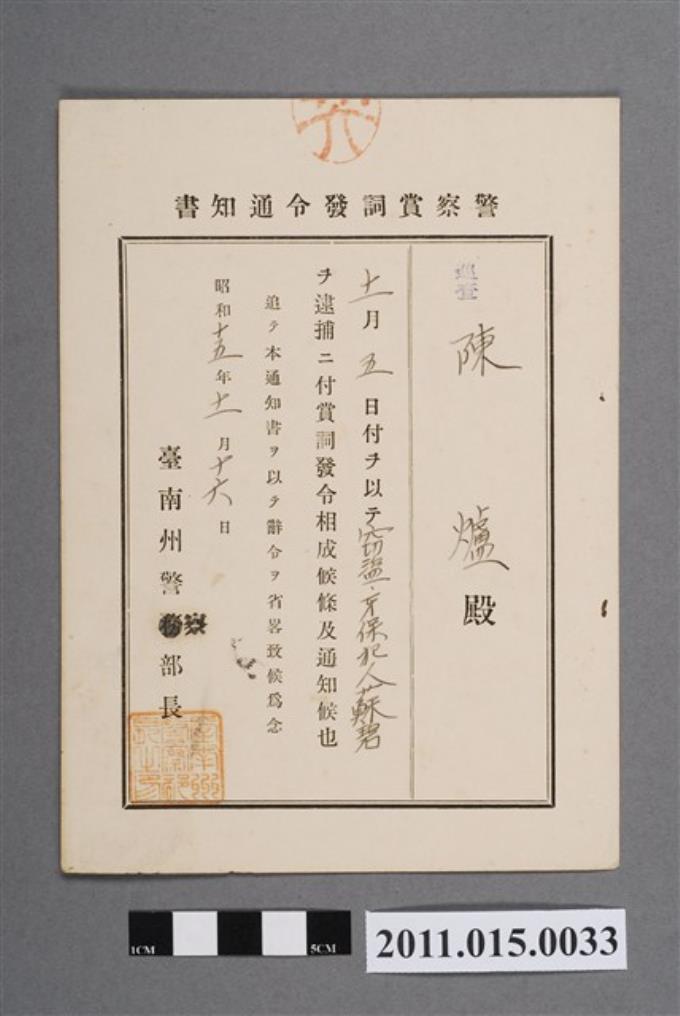 警察賞詞發令通知書
巡查
陳爐殿
十一月五日付ヲ以テ窃盜
保犯人蘇碧
ヲ逮捕ニ付賞詞發令相成候條及通知候也
追テ本通知書ヲ以テ辭令ヲ省畧致候爲念
昭和十五年十一月十六日
臺南州警察部長
臺南州警察部長之印
1CM
5CM
2011.015.0033